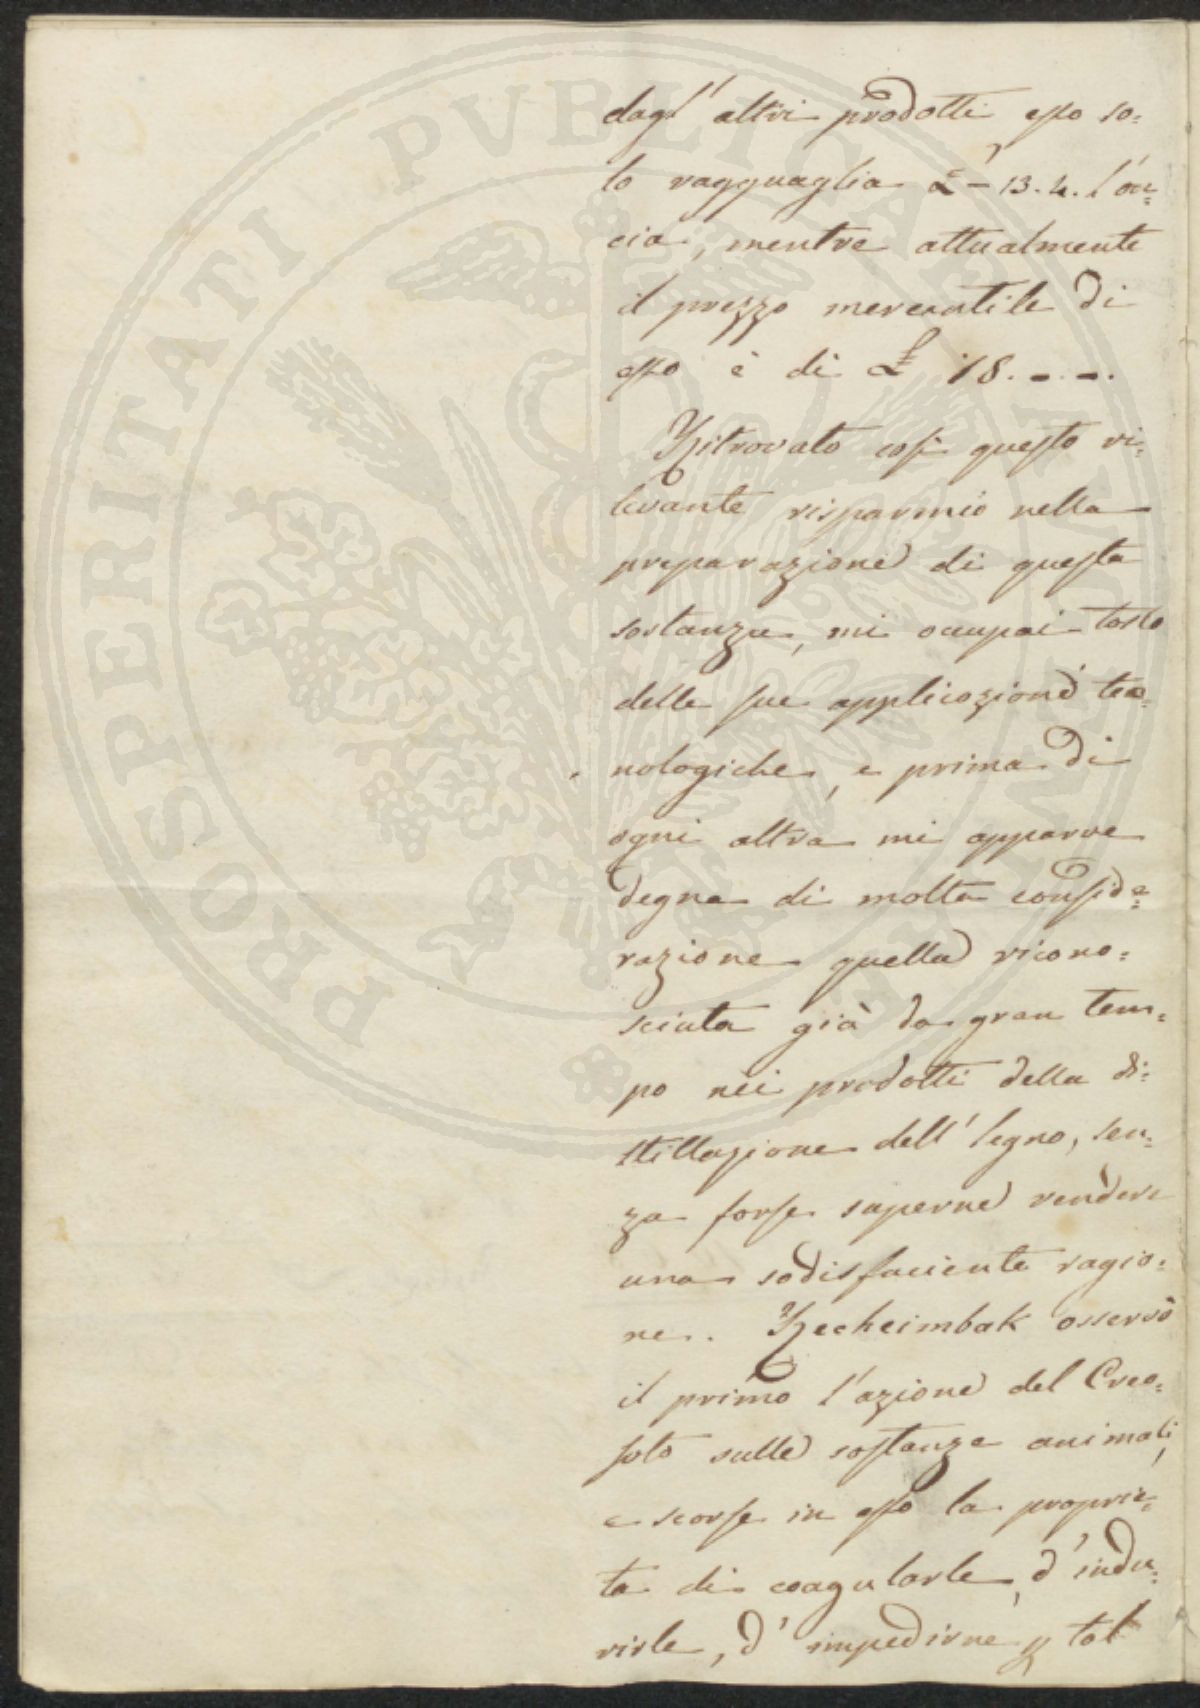 dagl' altri prodotti esso so=
lo ragguaglia £ – 13. 4. l'on=
cia, mentre attualmente
il prezzo mercantile di
esso è di £ 18. – . –.
Ritrovato così questo ri=
levante risparmio nella
preparazione di questa
sostanza, mi occupai tosto
delle sue applicazioni tec=
nologiche, e prima di
ogni altra mi apparve
degna di molta conside=
razione quella ricono=
sciuta già da gran tem=
po nei prodotti della di=
stillazione dell' legno, sen=
za forse saperne rendere
una sodisfaciente ragio=
ne. Recheimbak osservò
il primo l'azione del Creo=
soto sulle sostanze animali,
e scorse in esso la proprie=
tà di coagularle, d'indu=
rirle, d' impedirne p tal
PROSPERITATI PVBLICAE AVGENDAE